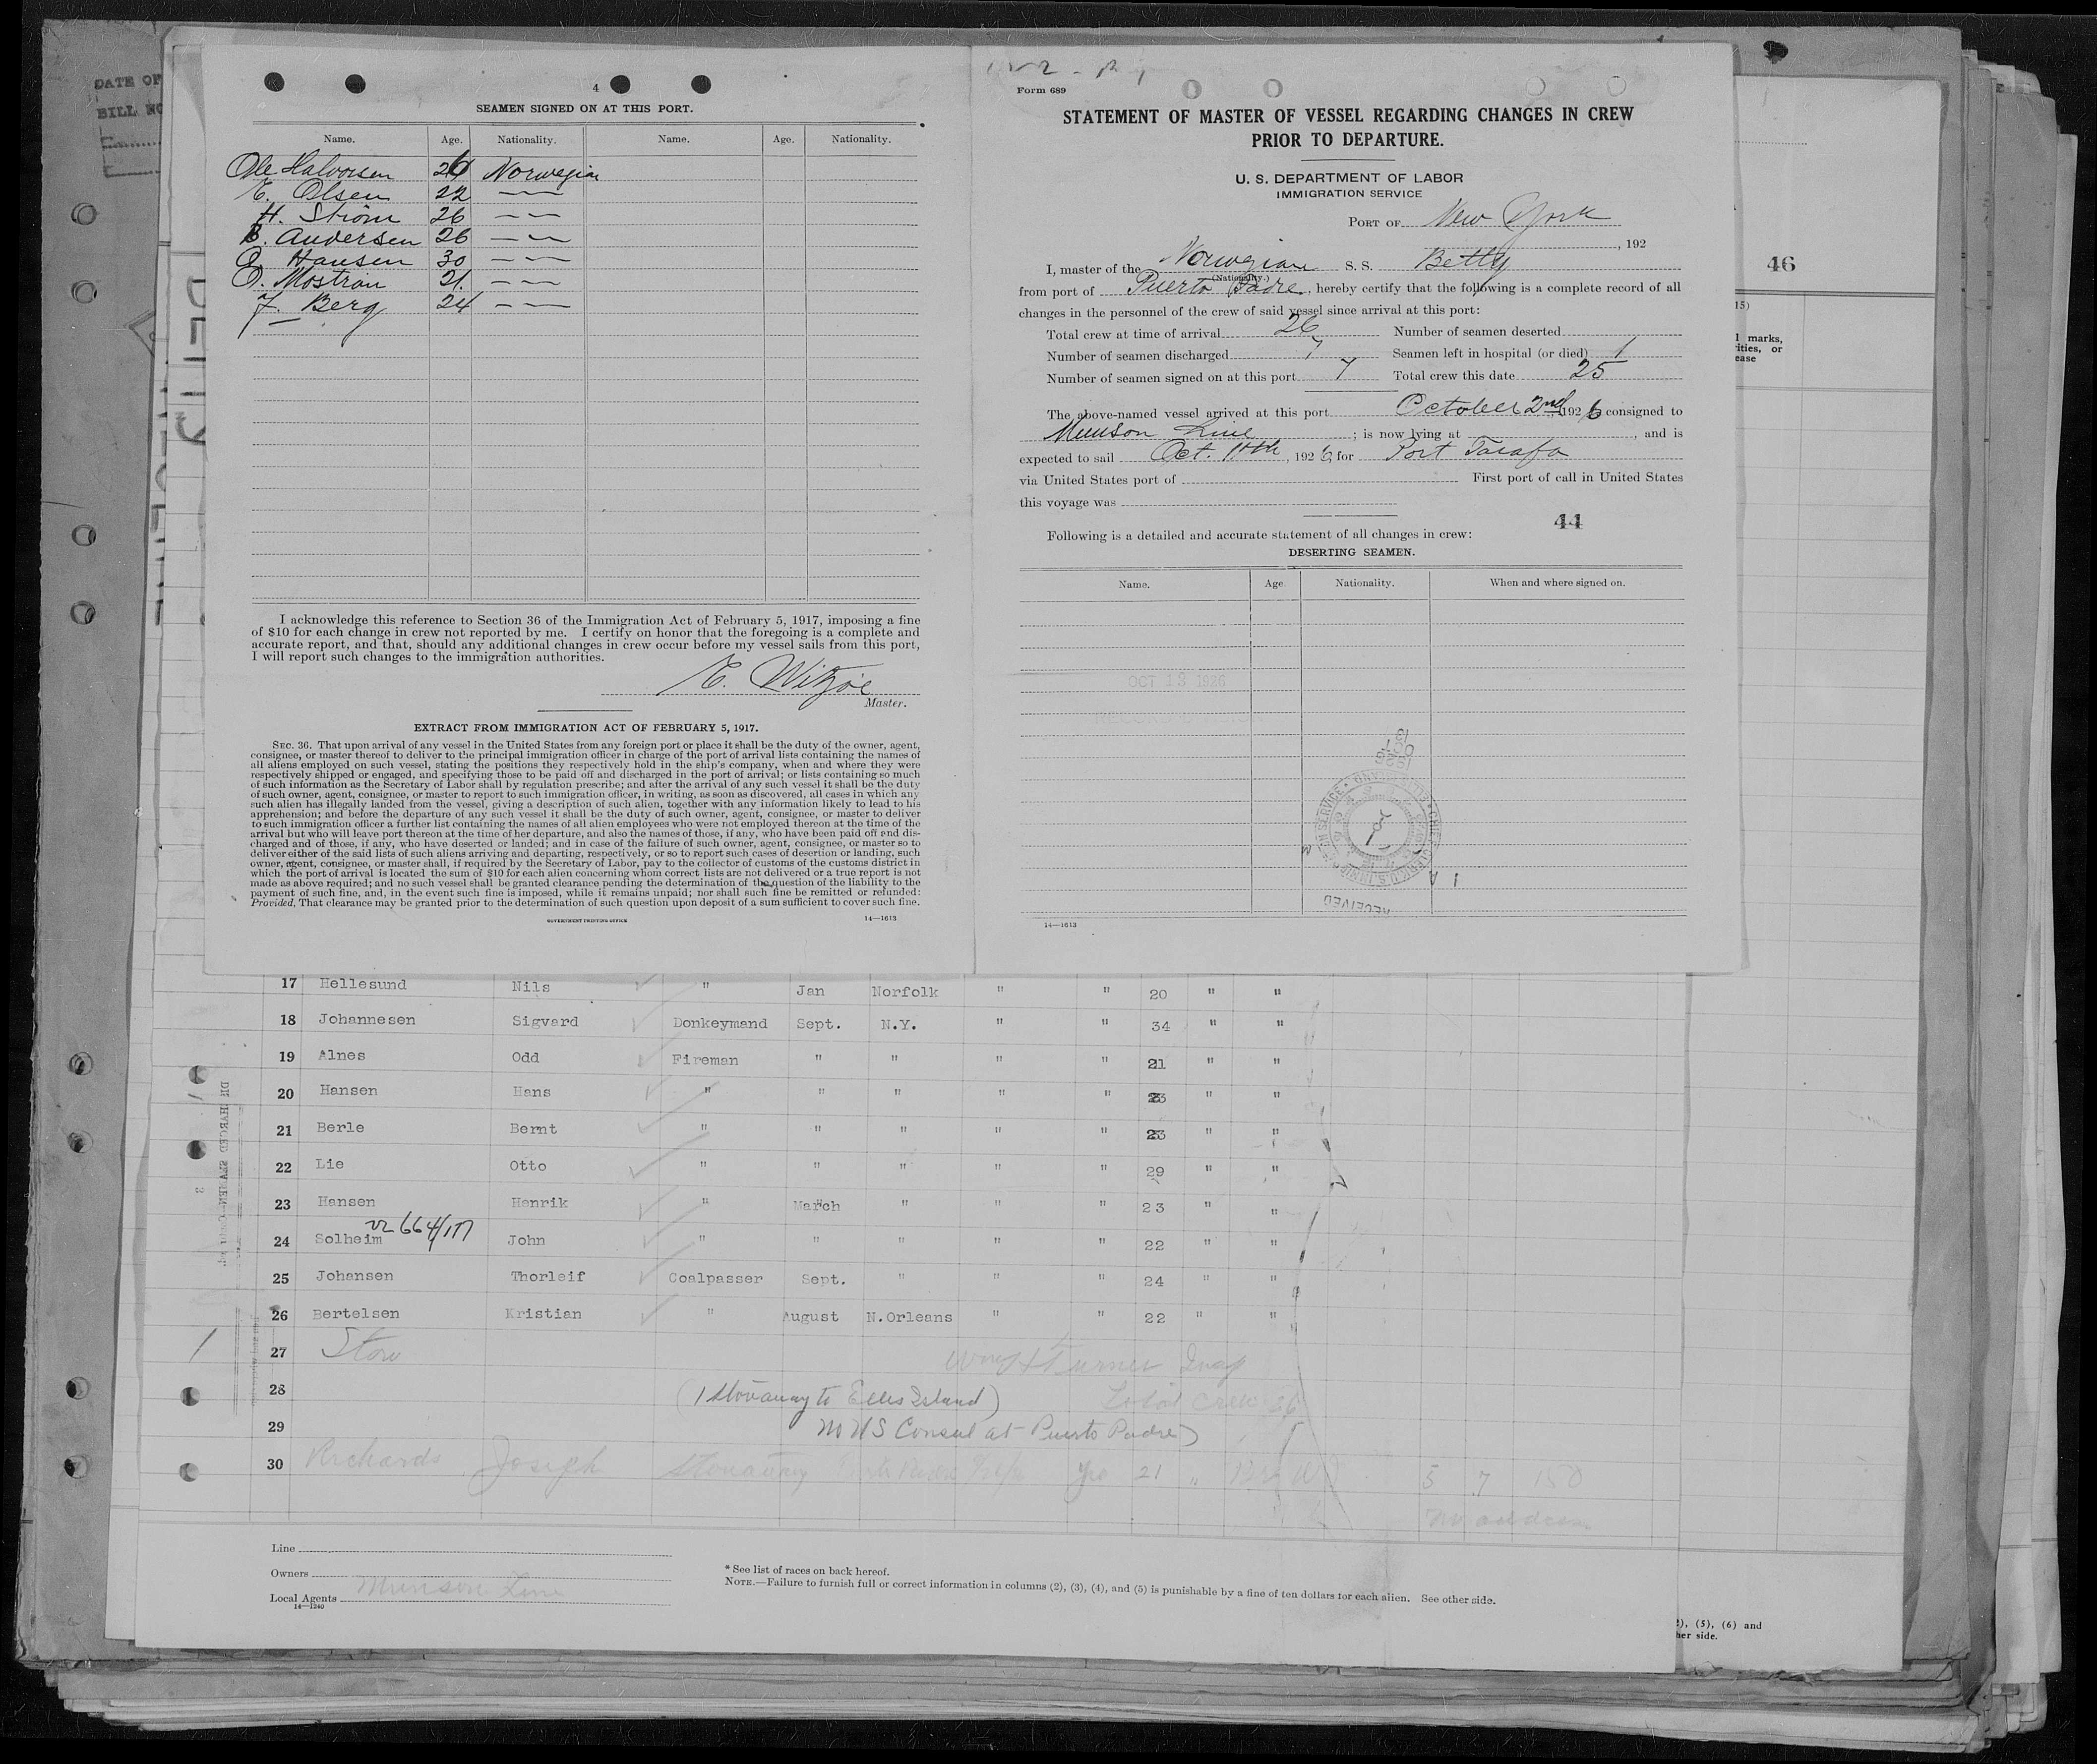 DATE OF
BILL NO
4
SEAMEN SIGNED ON AT THIS PORT.
Name. Age. Nationality. Name. Age. Nationality.
Ole Halvorsen Norwegian
E. Olsen 22 — —
H. Ström 26 — —
B. Andersen 26 — —
Hansen 30 — —
O. Mostran 21. — —
F. Berg 24 — —
I acknowledge this reference to Section 36 of the Immigration Act of February 5, 1917, imposing a fine
of $10 for each change in crew not reported by me. I certify on honor that the foregoing is a complete and
accurate report, and that, should any additional changes in crew occur before my vessel sails from this port,
I will report such changes to the immigration authorities.
E. Witzøe
Master.
EXTRACT FROM IMMIGRATION ACT OF FEBRUARY 5, 1917.
SEC. 36. That upon arrival of any vessel in the United States from any foreign port or place it shall be the duty of the owner, agent,
consignee, or master thereof to deliver to the principal immigration officer in charge of the port of arrival lists containing the names of
all aliens employed on such vessel, stating the positions they respectively hold in the ship's company, when and where they were
respectively shipped or engaged, and specifying those to be paid off and discharged in the port of arrival; or lists containing so much
of such information as the Secretary of Labor shall by regulation prescribe; and after the arrival of any such vessel it shall be the duty
of such owner, agent, consignee, or master to report to such immigration officer, in writing, as soon as discovered, all cases in which any
such alien has illegally landed from the vessel, giving a description of such alien, together with any information likely to lead to his
apprehension; and before the departure of any such vessel it shall be the duty of such owner, agent, consignee, or master to deliver
to such immigration officer a further list containing the names of all alien employees who were not employed thereon at the time of the
arrival but who will leave port thereon at the time of her departure, and also the names of those, if any, who have been paid off and dis-
charged and of those, if any, who have deserted or landed; and in case of the failure of such owner, agent, consignee, or master so to
deliver either of the said lists of such aliens arriving and departing, respectively, or so to report such cases of desertion or landing, such
owner, agent, consignee, or master shall, if required by the Secretary of Labor, pay to the collector of customs of the customs district in
which the port of arrival is located the sum of $10 for each alien concerning whom correct lists are not delivered or a true report is not
made as above required; and no such vessel shall be granted clearance pending the determination of the question of the liability to the
payment of such fine, and, in the event such fine is imposed, while it remains unpaid; nor shall such fine be remitted or refunded:
Provided, That clearance may be granted prior to the determination of such question upon deposit of a sum sufficient to cover such fine.
GOVERNMENT PRINTING OFFICE 14—1613
Form 689
STATEMENT OF MASTER OF VESSEL REGARDING CHANGES IN CREW
PRIOR TO DEPARTURE.
U. S. DEPARTMENT OF LABOR
IMMIGRATION SERVICE
PORT OF New York
, 192
I, master of the Norwegian S. S. Betty
(Nationality.)
from port of Puerto Padre, hereby certify that the following is a complete record of all
changes in the personnel of the crew of said vessel since arrival at this port:
Total crew at time of arrival 26 Number of seamen deserted
Number of seamen discharged 7 Seamen left in hospital (or died) 1
Number of seamen signed on at this port 7 Total crew this date 25
The above-named vessel arrived at this port October 2nd, 1926 consigned to
Munson Line ; is now lying at , and is
expected to sail Oct. 11th, 1926, for Port Tarafa
via United States port of First port of call in United States
this voyage was
44
Following is a detailed and accurate statement of all changes in crew:
DESERTING SEAMEN.
Name. Age. Nationality. When and where signed on.
OCT 13 1926
RECEIVED
14—1613
46
15)
l marks,
rities, or
ease
17 Hellesund Nils " Jan Norfolk " " 20 " "
18 Johannesen Sigvard Donkeymand Sept. N.Y. " " 34 " "
19 Alnes Odd Fireman " " " " 21 " "
20 Hansen Hans " " " " " 23 " "
21 Berle Bernt " " " " " 23 " "
22 Lie Otto " " " " " 29 " "
23 Hansen Henrik " March " " " 23 " "
24 Solheim John " " " " " 22 " "
25 Johansen Thorleif Coalpasser Sept. " " " 24 " "
26 Bertelsen Kristian " August N.Orleans " " 22 " "
27 Stow Turner Insp
28 (1 Stowaway to Ellis Island) Total crew 26
29 No US Consul at Puerto Padre)
30 Richards Joseph Stowaway yes 21 " 5 7 150
Line
Owners
Local Agents Munson Line
14—1240
* See list of races on back hereof.
NOTE.—Failure to furnish full or correct information in columns (2), (3), (4), and (5) is punishable by a fine of ten dollars for each alien. See other side.
), (5), (6) and
her side.